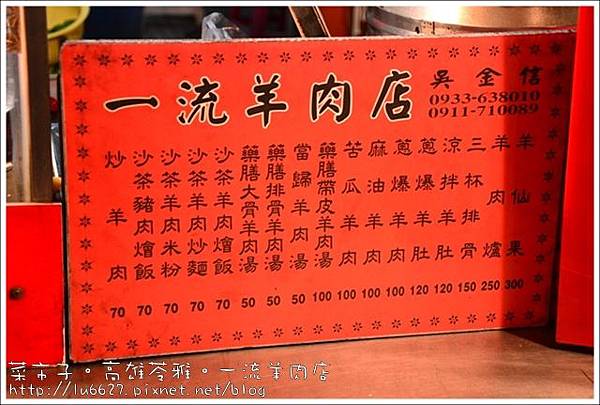 一流羊肉店
吳金信
0933-638010
0911-710089
羊仙果 300
羊肉爐 250
三杯羊排骨 150
涼拌羊肚 120
蔥爆羊肚 120
蔥爆羊肉 100
麻油羊肉 100
苦瓜羊肉 100
藥膳帶皮羊肉湯 100
當歸羊肉湯 50
藥膳排骨羊肉湯 50
藥膳大骨羊肉湯 50
沙茶羊肉燴飯 70
沙茶羊肉炒麵 70
沙茶羊肉米粉 70
沙茶豬肉燴飯 70
炒羊肉 70
菜市子。高雄苓雅。一流羊肉店
http://lu6627.pixnet.net/blog